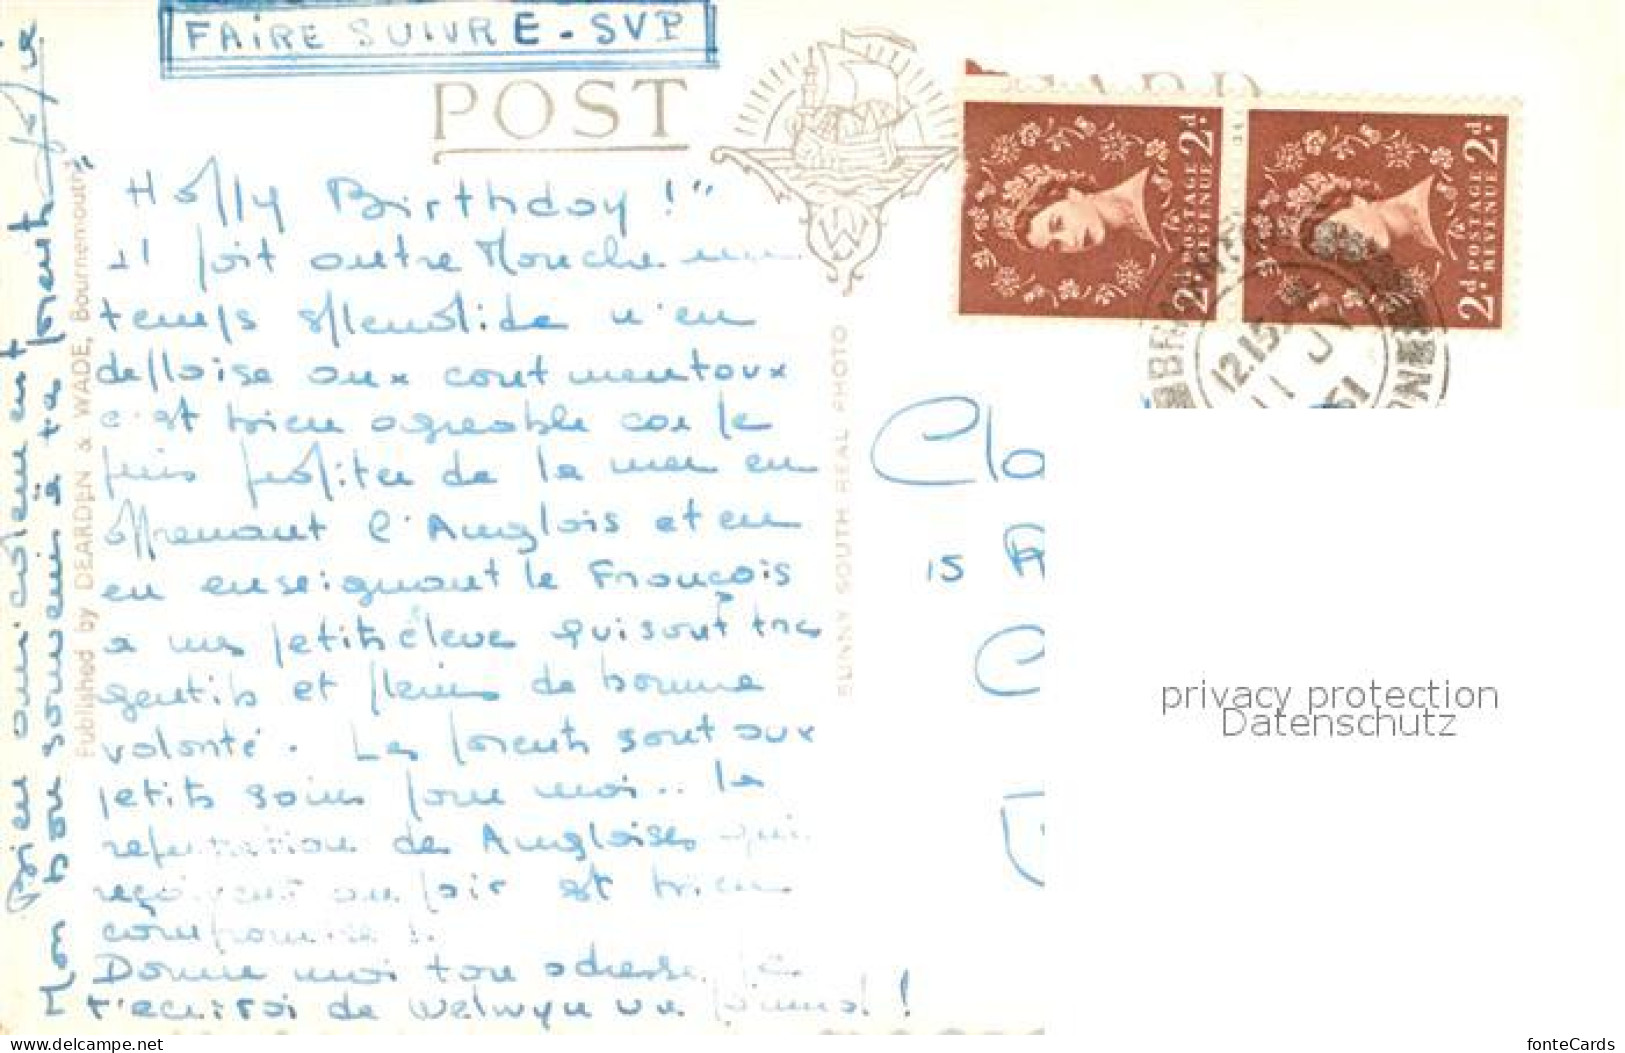 FAIRE SUIVRE - SVP
POST CARD
"Happy Birthday !"
Il fait outre Manche un
temps splendide n'en
déplaise aux continentaux
c'est bien agréable car je
puis profiter de la mer en
apprenant l'Anglais et en
en enseignant le Français
à mes petits élèves qui sont très
gentils et pleins de bonne
volonté. Les parents sont aux
petits soins pour moi.. la
réputation de Anglaises qui
reçoivent au pair est bien
compromise !.
Donne moi ton adresse je
t'écrirai de Welwyn
Bien amicalement
Mon bon souvenir à tes parents
Published by DEARDEN & WADE, Bournemouth
SUNNY SOUTH REAL PHOTO
2d POSTAGE REVENUE 2d
2d POSTAGE REVENUE 2d
12.15
11 JY
61
Cla
15
C
privacy protection
Datenschutz
http://www.ansichtskarten-center.de
fonteCards